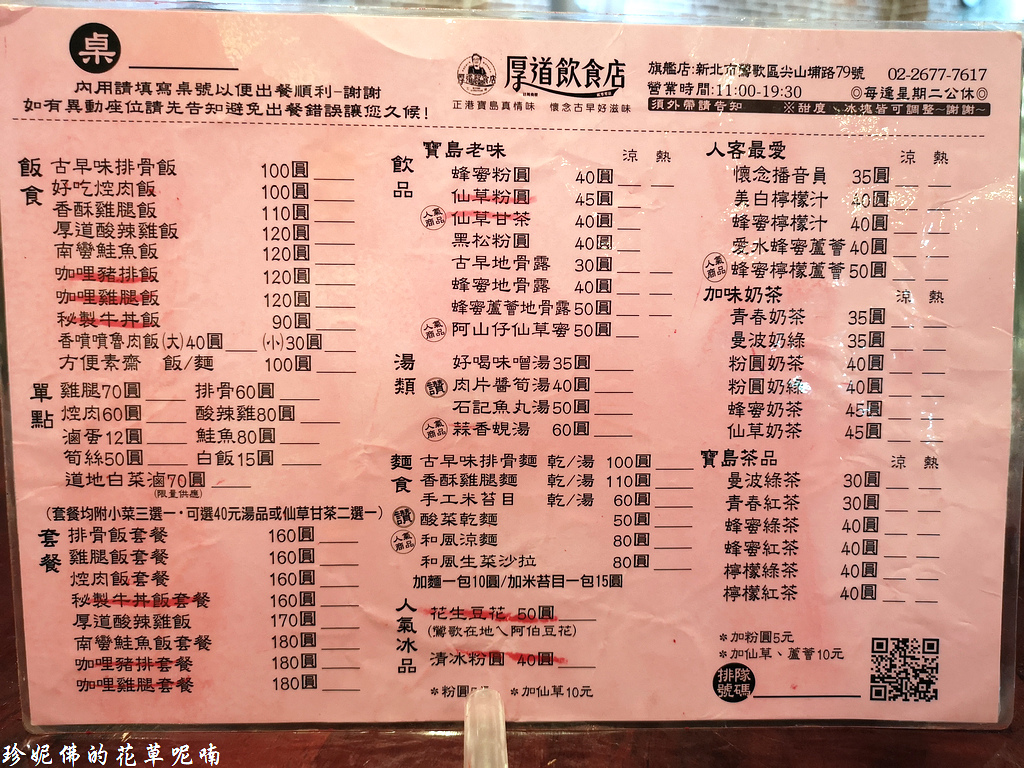 桌
內用請填寫桌號以便出餐順利-謝謝
如有異動座位請先告知避免出餐錯誤讓您久候!
厚道飲食店
正港寶島真情味 懷念古早好滋味
旗艦店:新北市鶯歌區尖山埔路79號 02-2677-7617
營業時間:11:00-19:30 ◎每逢星期二公休◎
須外帶請告知 ※甜度、冰塊皆可調整~謝謝~
飯食
古早味排骨飯 100圓
好吃焢肉飯 100圓
香酥雞腿飯 110圓
厚道酸辣雞飯 120圓
南蠻鮭魚飯 120圓
咖哩豬排飯 120圓
咖哩雞腿飯 120圓
秘製牛丼飯 90圓
香噴噴魯肉飯(大)40圓 (小)30圓
方便素齋 飯/麵 100圓
單點
雞腿70圓 排骨60圓
焢肉60圓 酸辣雞80圓
滷蛋12圓 鮭魚80圓
筍絲50圓 白飯15圓
道地白菜滷70圓
(限量供應)
(套餐均附小菜三選一·可選40元湯品或仙草甘茶二選一)
套餐
排骨飯套餐 160圓
雞腿飯套餐 160圓
焢肉飯套餐 160圓
秘製牛丼飯套餐 160圓
厚道酸辣雞飯 170圓
南蠻鮭魚飯套餐 180圓
咖哩豬排套餐 180圓
咖哩雞腿套餐 180圓
飲品
寶島老味 涼 熱
蜂蜜粉圓 40圓
仙草粉圓 45圓
人氣商品 仙草甘茶 40圓
黑松粉圓 40圓
古早地骨露 30圓
蜂蜜地骨露 40圓
蜂蜜蘆薈地骨露50圓
人氣商品 阿山仔仙草蜜50圓
湯類
好喝味噌湯35圓
讚 肉片醬筍湯40圓
石記魚丸湯50圓
人氣商品 蒜香蜆湯 60圓
麵食
古早味排骨麵 乾/湯 100圓
香酥雞腿麵 乾/湯 110圓
手工米苔目 乾/湯 60圓
讚 酸菜乾麵 50圓
人氣商品 和風涼麵 80圓
和風生菜沙拉 80圓
加麵一包10圓/加米苔目一包15圓
人氣冰品
花生豆花 50圓
(鶯歌在地ㄟ阿伯豆花)
清冰粉圓 40圓
*粉圓 *加仙草10元
人客最愛 涼 熱
懷念播音員 35圓
美白檸檬汁 40圓
蜂蜜檸檬汁 40圓
愛水蜂蜜蘆薈40圓
人氣商品 蜂蜜檸檬蘆薈50圓
加味奶茶 涼 熱
青春奶茶 35圓
曼波奶綠 35圓
粉圓奶茶 40圓
粉圓奶綠 40圓
蜂蜜奶茶 45圓
仙草奶茶 45圓
寶島茶品 涼 熱
曼波綠茶 30圓
青春紅茶 30圓
蜂蜜綠茶 40圓
蜂蜜紅茶 40圓
檸檬綠茶 40圓
檸檬紅茶 40圓
*加粉圓5元
*加仙草、蘆薈10元
排隊號碼
珍妮佛的花草呢喃